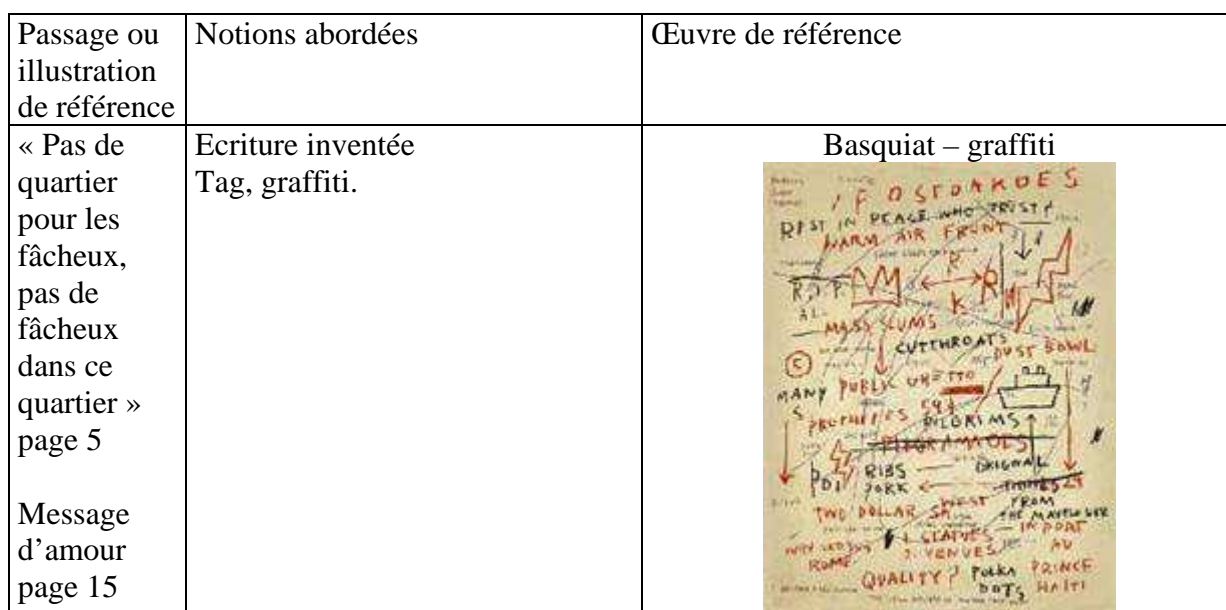 Passage ou
illustration
de référence
Notions abordées
Œuvre de référence
« Pas de
quartier
pour les
fâcheux,
pas de
fâcheux
dans ce
quartier »
page 5
Message
d’amour
page 15
Ecriture inventée
Tag, graffiti.
Basquiat – graffiti
REST IN PEACE WHO TRIST
WARM AIR FRONT
R
R.I.P. R
K
MASS SLUMS
CUTTHROATS
DUST BOWL
MANY PUBLIC GHETTO
S
PROPHETIES
PILGRIMS
RIBS ORIGNAL
PORK
WEST FROM
TWO DOLLAR THE MAYFLOWER
SLAVES IN PORT
VENUES AU
ROME PRINCE
QUALITY? POLKA HAITI
DOTS